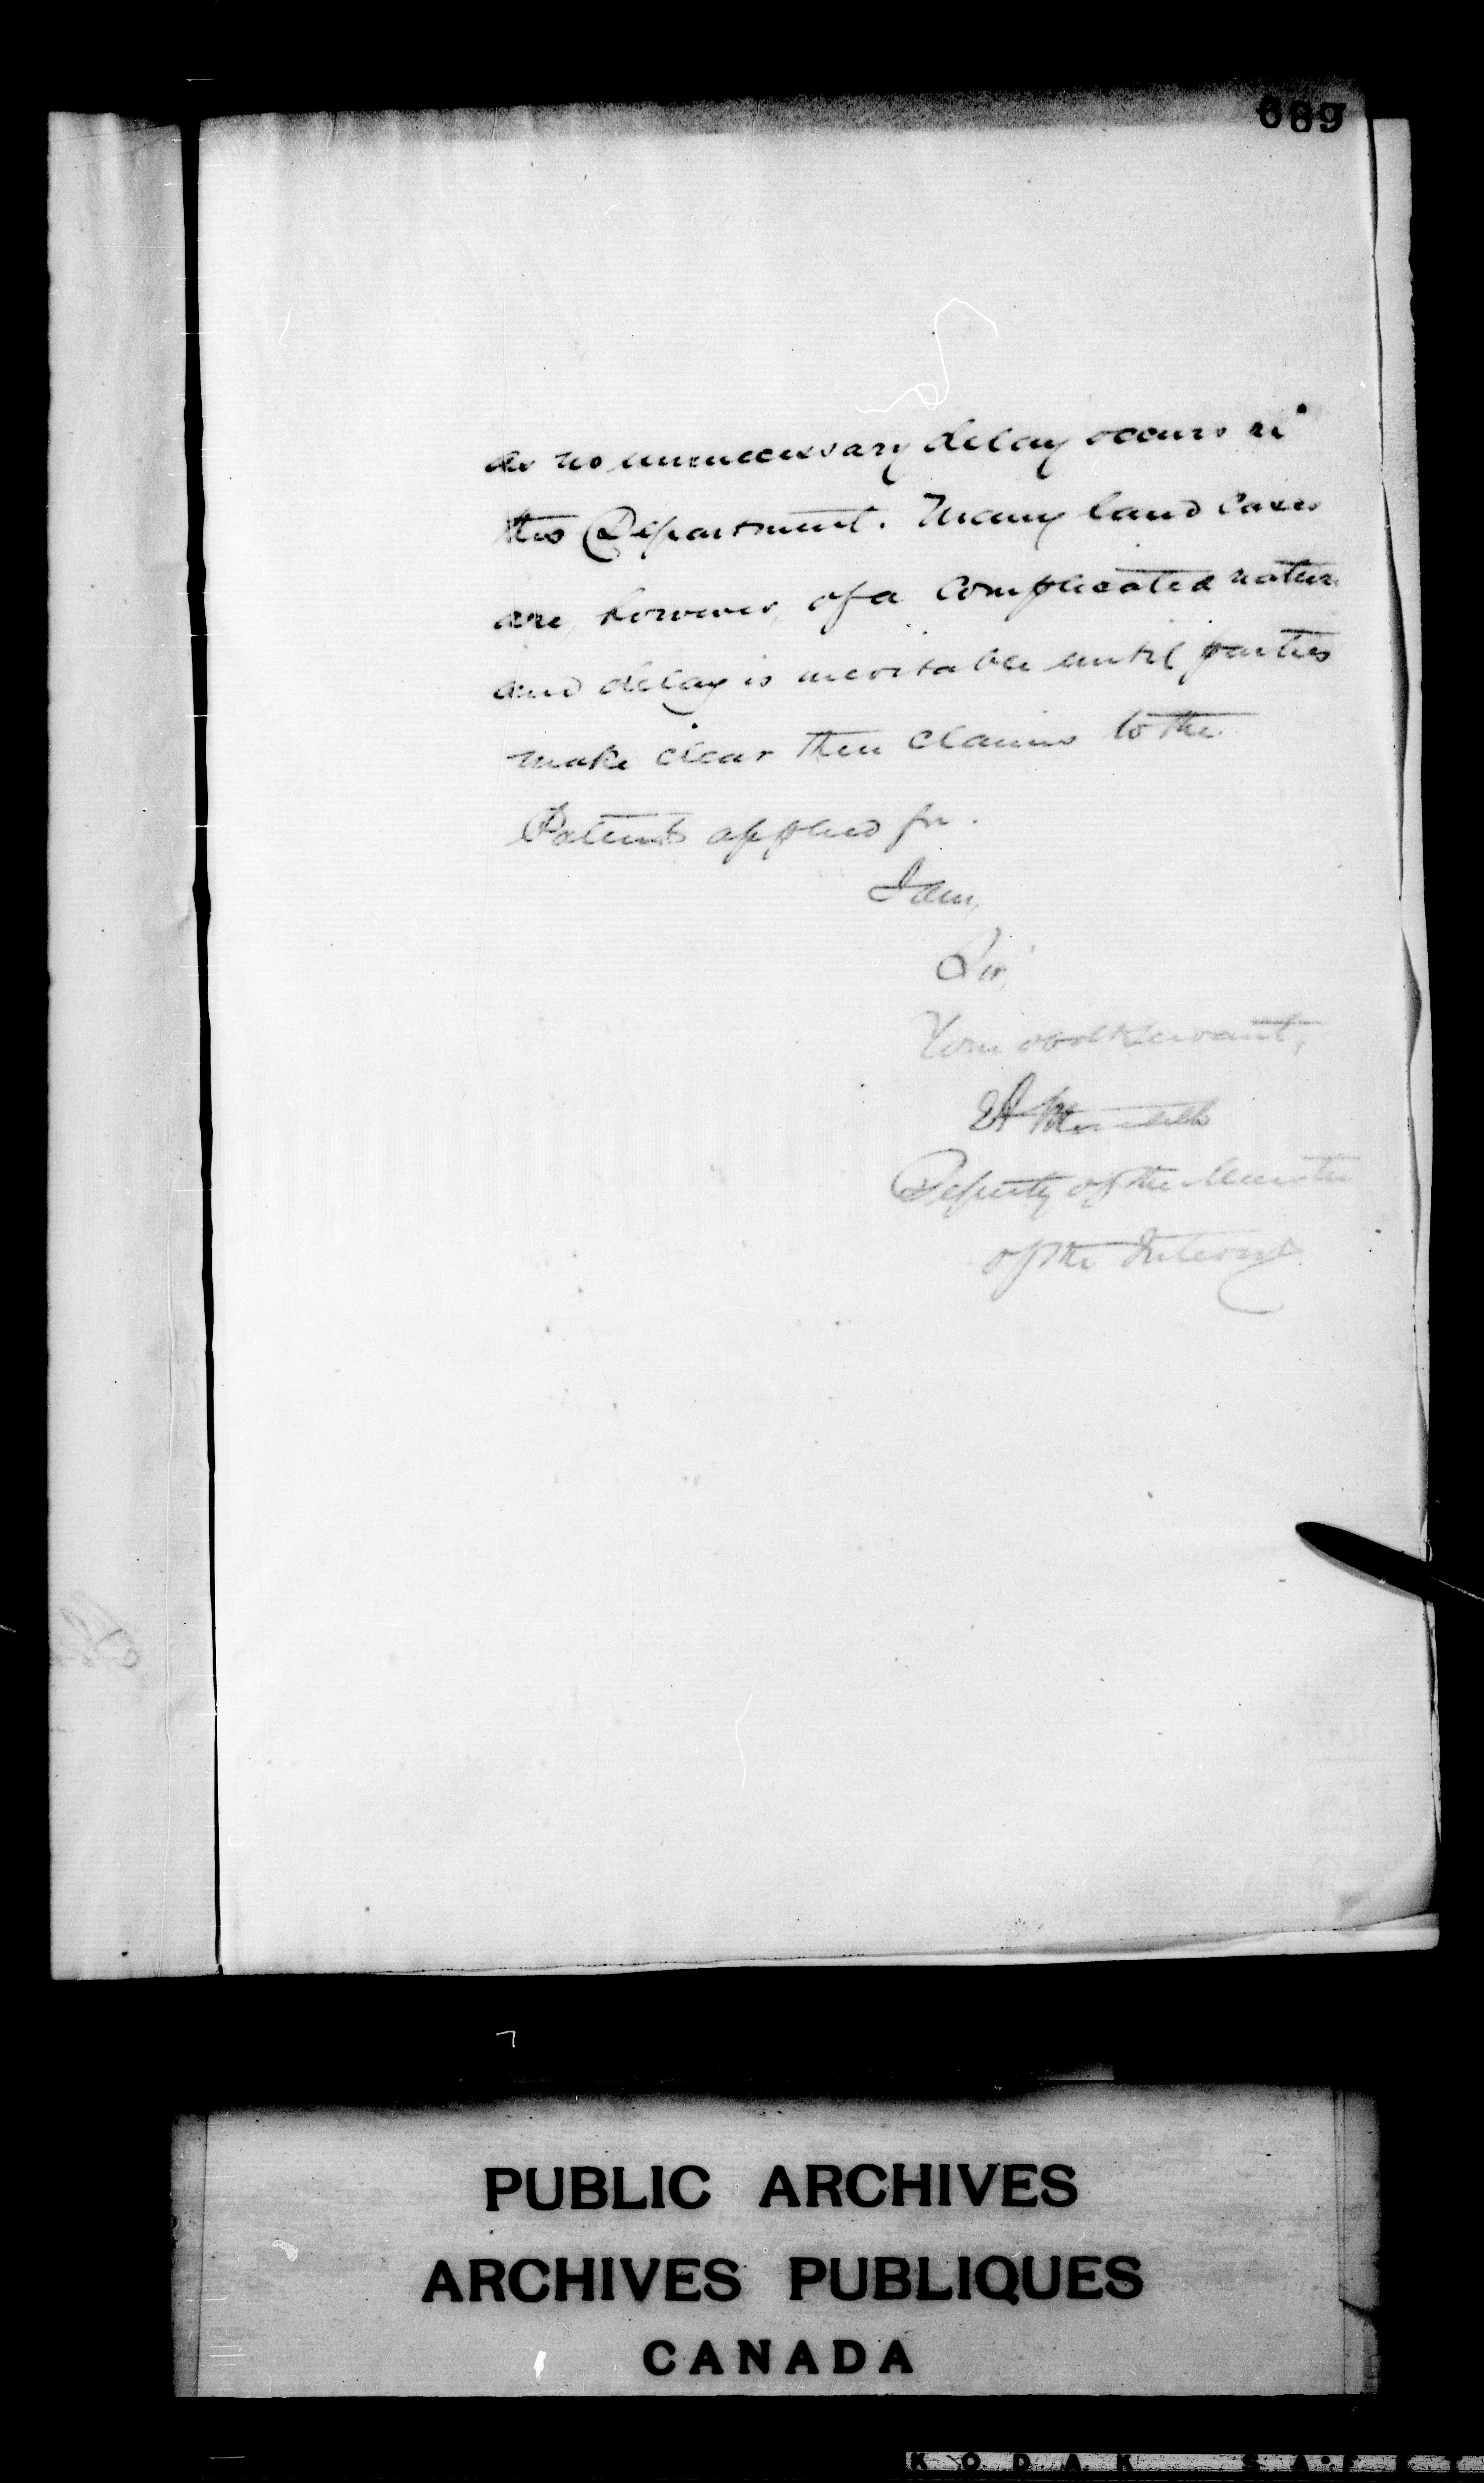 689
as no unnecessary delay occurs in
this Department. Many land cases
are, however, of a complicated nature
and delay is inevitable until parties
make clear their claims to the
Patents applied for.
I am,
Sir,
Your obdt servant,
EA Meredith
Deputy of the Minister
of the Interior
PUBLIC ARCHIVES
ARCHIVES PUBLIQUES
CANADA
KODAK SAFET